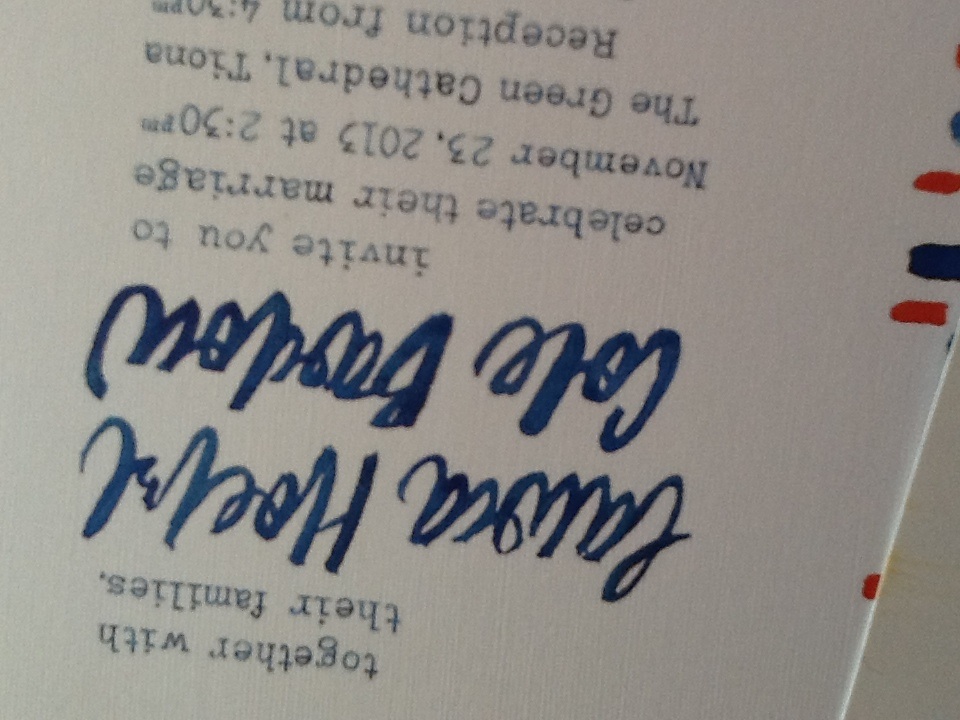 together with
their families,
Laura
Cole
invite you to
celebrate their marriage
November 23, 2013 at 2:30PM
The Green Cathedral, Tiona
Reception from 4:30PM